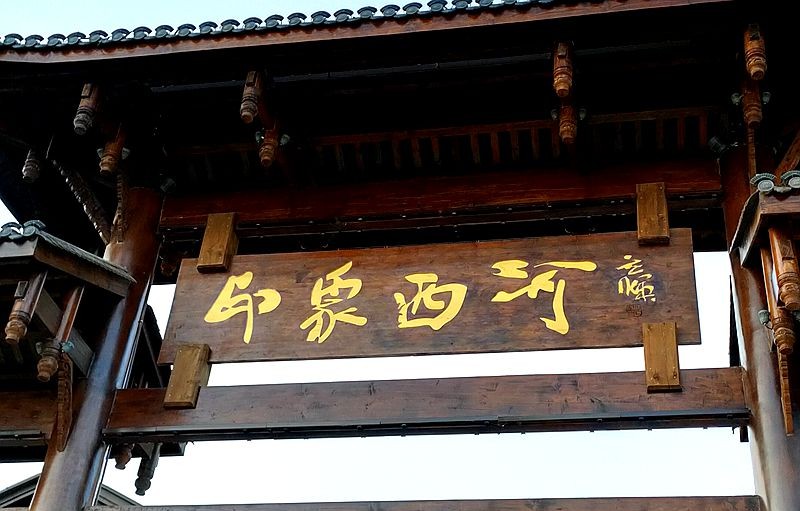 印象西河